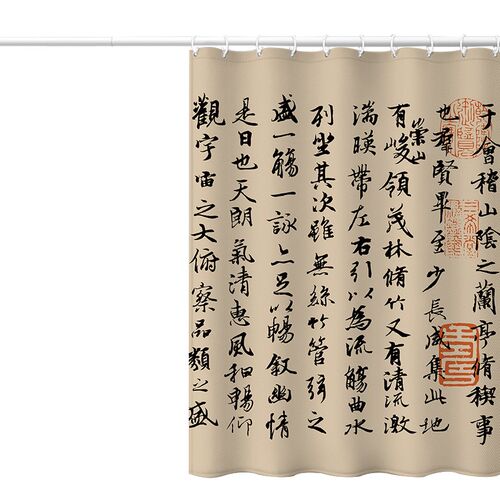 于會稽山陰之蘭亭脩禊事
也羣賢畢至少長咸集此地
有崇山峻領茂林脩竹又有清流激
湍暎帶左右引以為流觴曲水
列坐其次雖無絲竹管弦之
盛一觴一詠亦足以暢敘幽情
是日也天朗氣清惠風和暢仰
觀宇宙之大俯察品類之盛